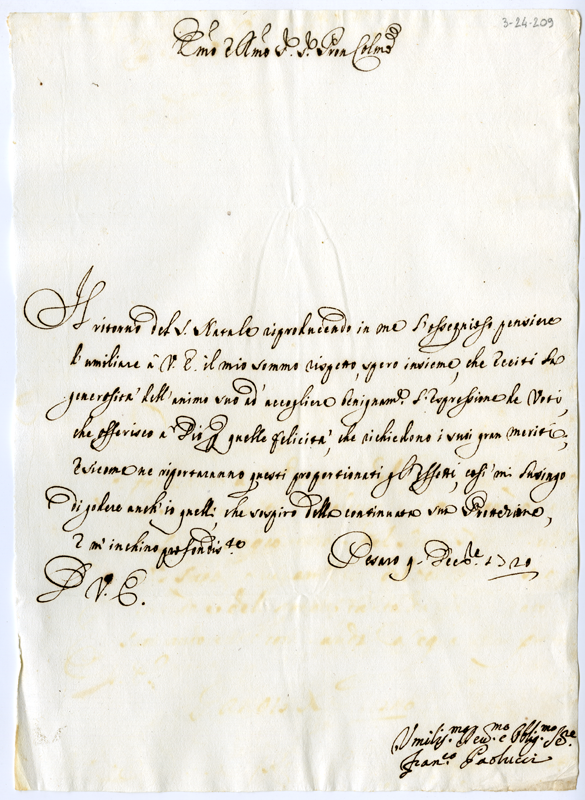 3-24-209
Emo e Rmo Sr. Sr. Pron Colmo
Il ritorno del S. Natale riproducendo in me l'ossequioso pensiere
d'umiliare à V. E. il mio sommo rispetto, spero insieme, che ecciti la
generosità dell'animo suo ad' accogliere benignam.e l'espressione de Voti,
che offerisco a Dio p quelle felicità, che richiedono i suoi gran meriti;
E sicome ne riportaranno questi proportionati gl'effetti, così mi lusingo
di godere anch'io quelli, che sospiro dalla continuata sua Protezione,
E m'inchino profondis.te
Pesaro 9. Decb.e 1720
D V. E.
Umilis.mo Dev.mo e Obblig.mo S.re
Fran.co Paolucci